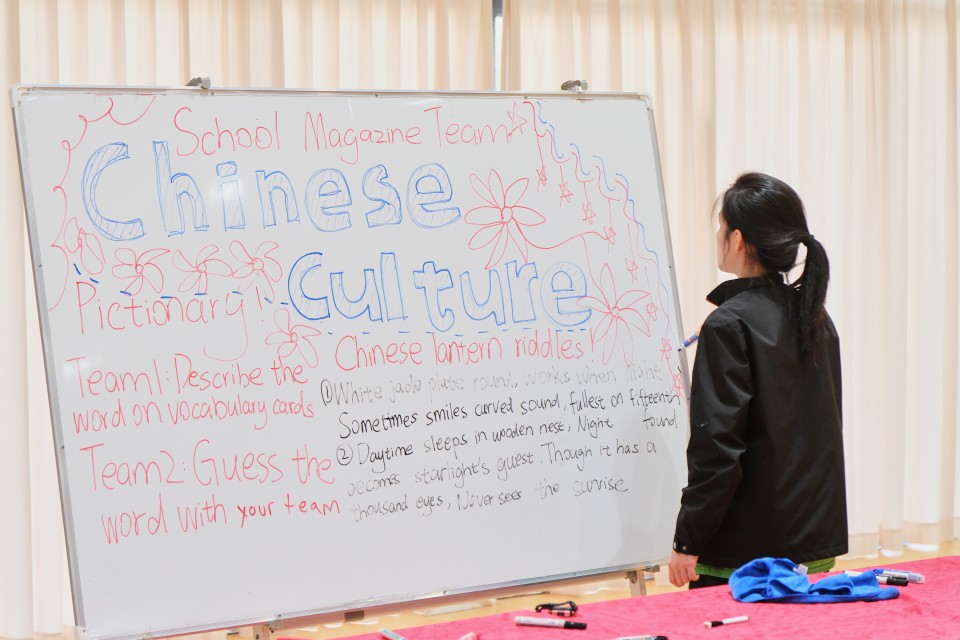 School Magazine Team
Chinese
Culture
Pictionary!
Team1: Describe the
word on vocabulary cards
Team2: Guess the
word with your team
Chinese lantern riddles!
①White jade plate round, works when night
Sometimes smiles curved sound, fullest on fifteenth
found
②Daytime sleeps in wooden nest, Night
becomes starlight's guest. Though it has a
thousand eyes, Never sees the sunrise